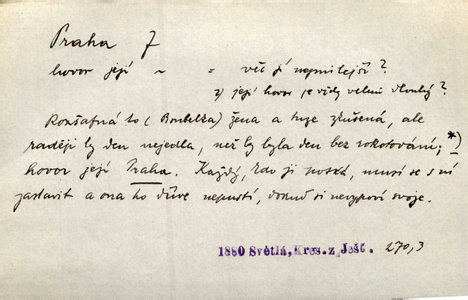 Praha 7
hovor její ~ = věc jí nejmilejší?
2) její hovor je vždy velmi dlouhý?
Rozšafná to (Boubelka) žena a tuze zkušená, ale
raději by den nejedla, než by byla den bez rokotování; *)
hovor její Praha. Každý, kdo ji potká, musí se s ní
zastavit a ona ho dříve nepustí, dokud si nevypoví svoje.
1880 Světlá, Kres. z Ješt. 270,3